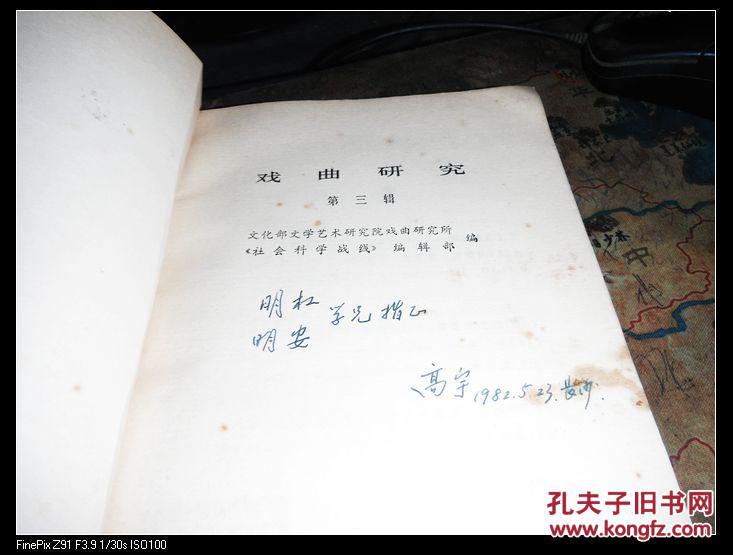 戏曲研究
第三辑
文化部文学艺术研究院戏曲研究所
《社会科学战线》编辑部 编
明杠
明安 学兄指正
高宇 1982.5.23.长沙.
孔夫子旧书网
www.kongfz.com
FinePix Z91 F3.9 1/30s ISO100